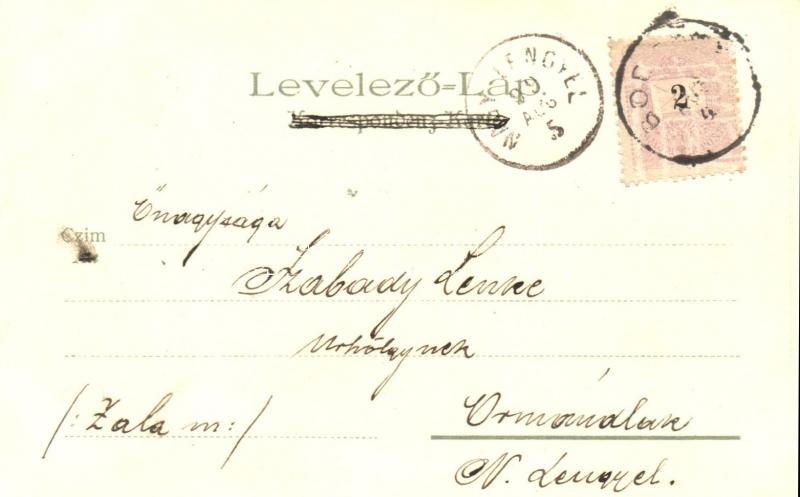 Levelező-Lap.
Korrespondenz-Karte
NAGY LENGYEL
AUG
5
2
Őnagysága
Czim
Szabady Lenke
Urhölgynek
/: Zala m: /
Ormándlak
N. Lengyel.